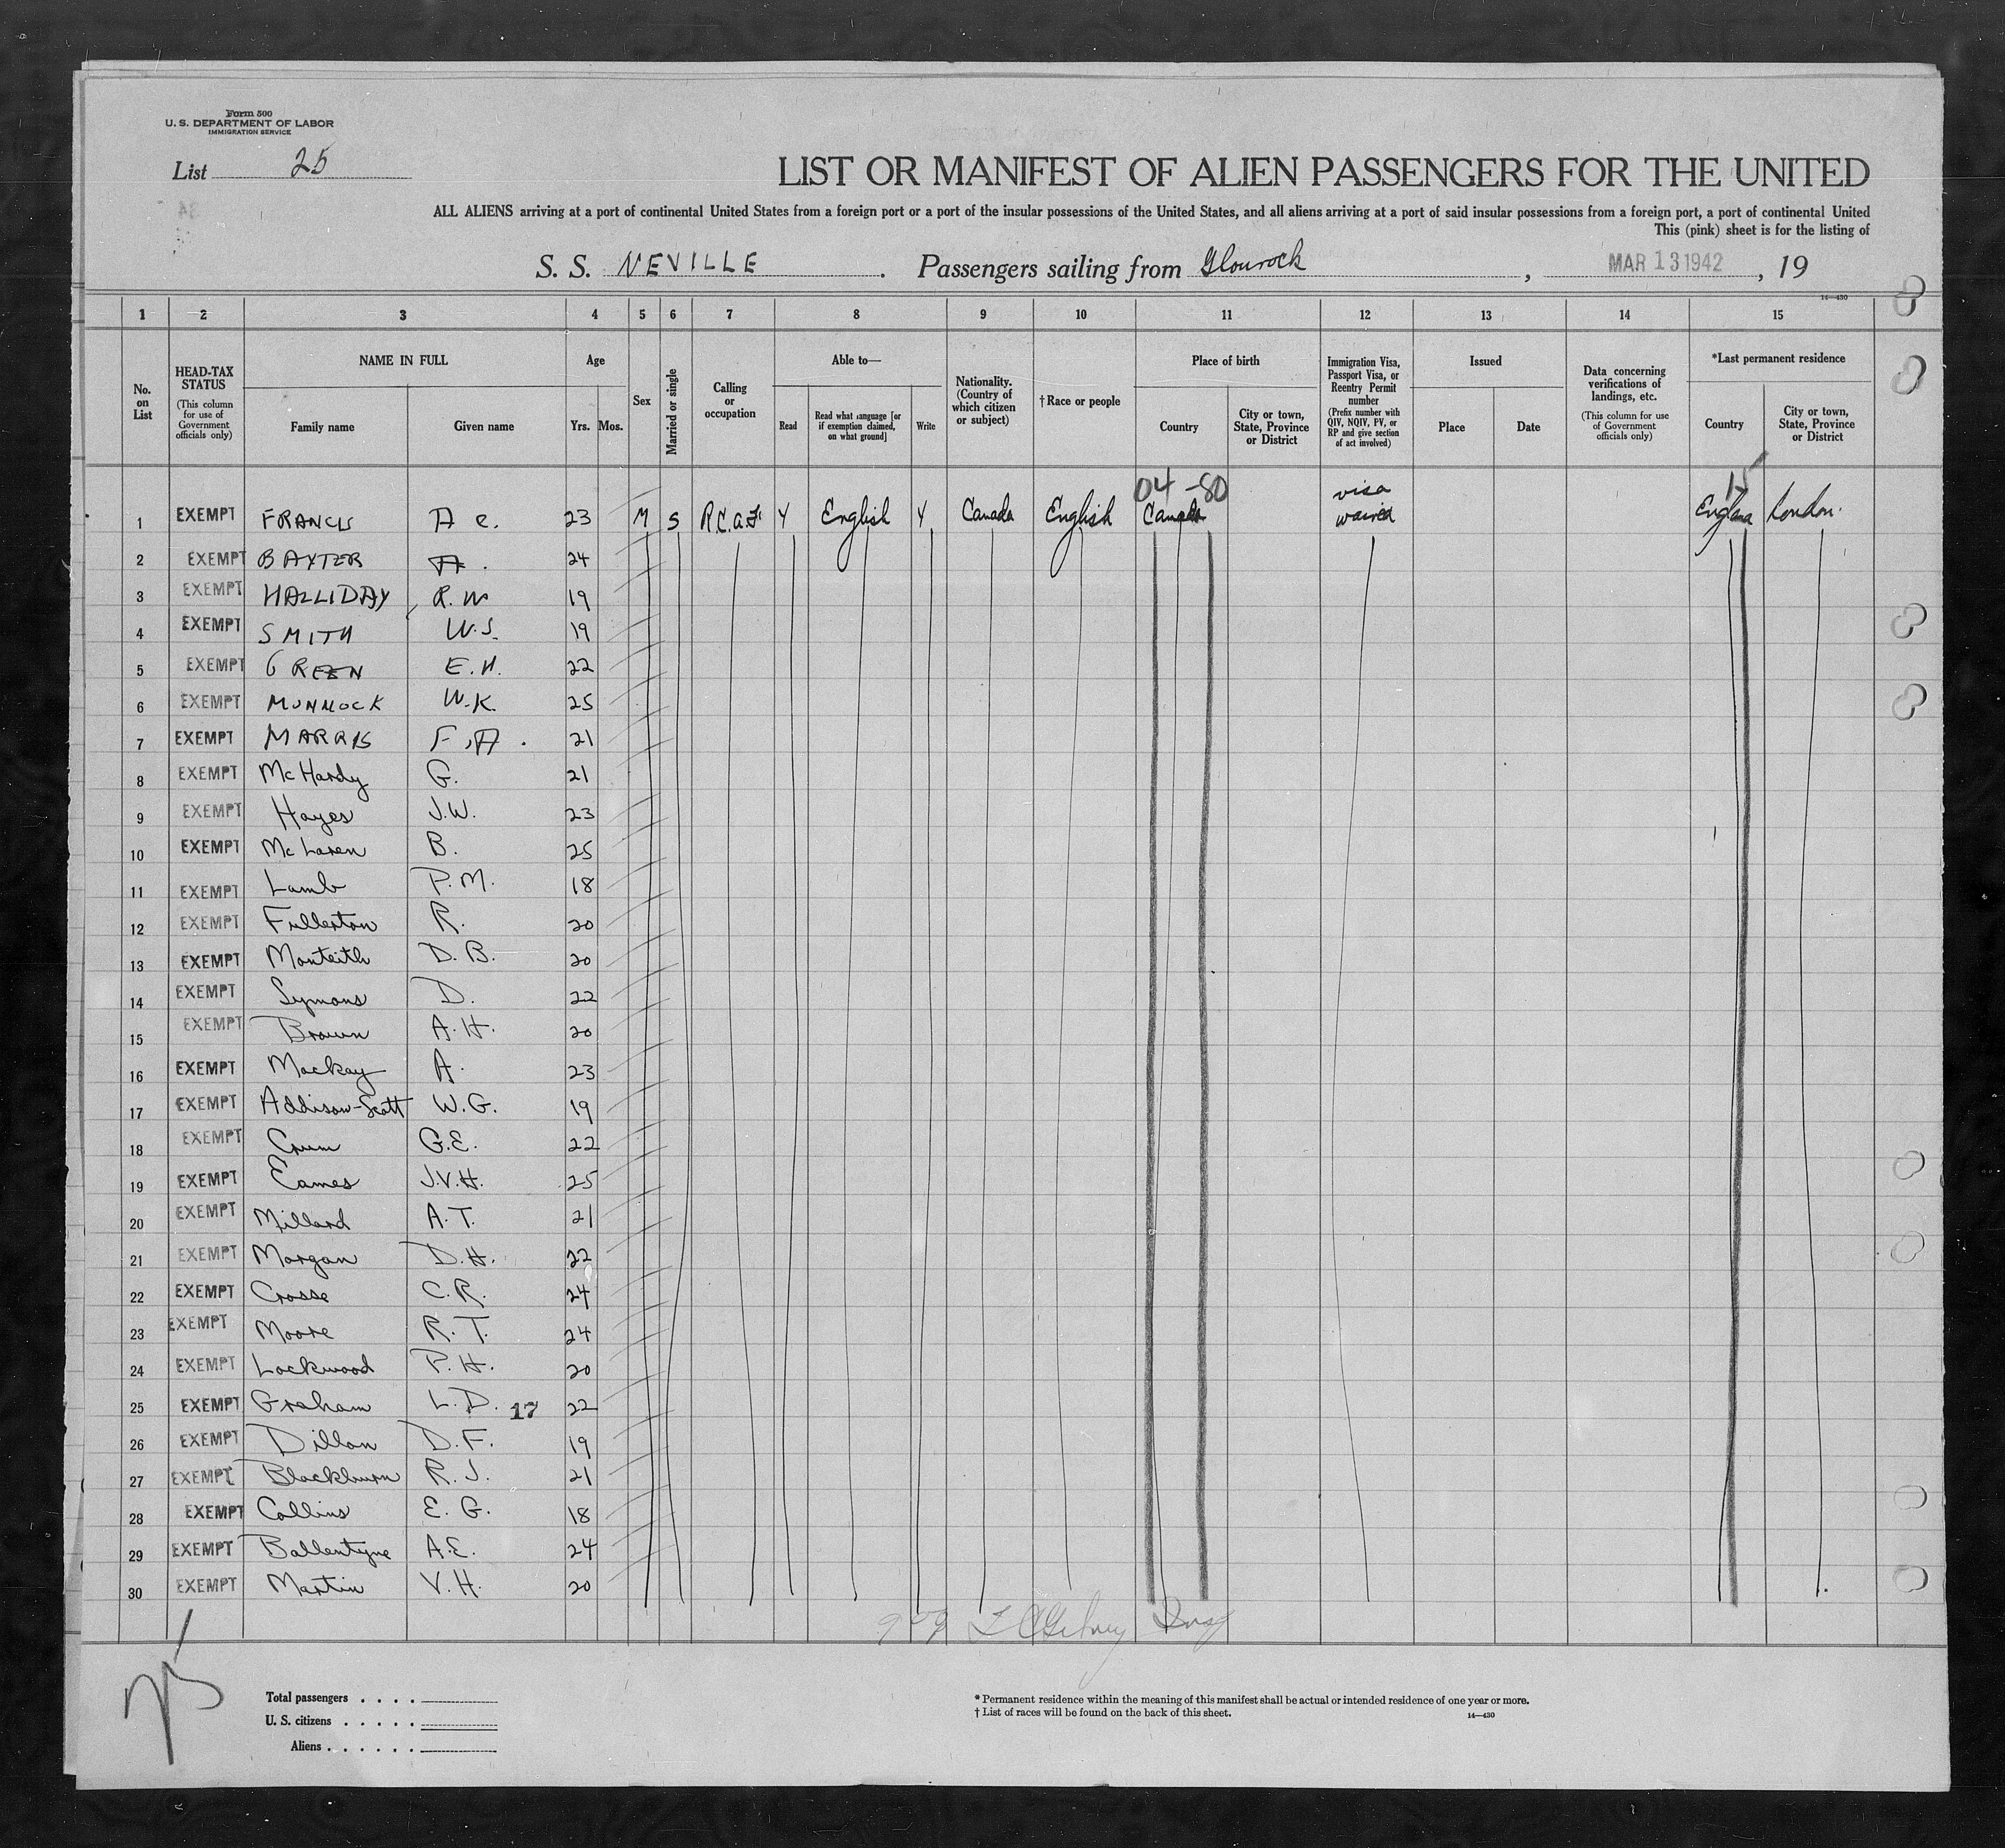 Form 500
U. S. DEPARTMENT OF LABOR
IMMIGRATION SERVICE
List 25
LIST OR MANIFEST OF ALIEN PASSENGERS FOR THE UNITED
ALL ALIENS arriving at a port of continental United States from a foreign port or a port of the insular possessions of the United States, and all aliens arriving at a port of said insular possessions from a foreign port, a port of continental United
This (pink) sheet is for the listing of
S. S. NEVILLE. Passengers sailing from Glourock, MAR 13 1942, 19
14—430
1 2 3 4 5 6 7 8 9 10 11 12 13 14 15
No. on List
HEAD-TAX STATUS (This column for use of Government officials only)
NAME IN FULL
Family name Given name
Age
Yrs. Mos.
Sex
Married or single
Calling or occupation
Able to—
Read
Read what language [or if exemption claimed, on what ground]
Write
Nationality. (Country of which citizen or subject)
† Race or people
Place of birth
Country
City or town, State, Province or District
Immigration Visa, Passport Visa, or Reentry Permit number (Prefix number with QIV, NQIV, PV, or RP and give section of act involved)
Issued
Place Date
Data concerning verifications of landings, etc. (This column for use of Government officials only)
*Last permanent residence
Country
City or town, State, Province or District
04 -80
15
1 EXEMPT FRANCIS A C. 23 M S R.C.A.F. Y English Y Canada English Canada visa waived England London.
2 EXEMPT BAXTER A. 24
3 EXEMPT HALLIDAY, R. W 19
4 EXEMPT SMITH W.S. 19
5 EXEMPT GREEN E.H. 22
6 EXEMPT MUNNOCK W.K. 25
7 EXEMPT MARRIS F.A. 21
8 EXEMPT McHardy G. 21
9 EXEMPT Hayes J.W. 23
10 EXEMPT McLaren B. 25
11 EXEMPT Lamb P.M. 18
12 EXEMPT Fullerton R. 20
13 EXEMPT Monteith D.B. 20
14 EXEMPT Symons D. 22
15 EXEMPT Brown A.H. 20
16 EXEMPT Mackay A. 23
17 EXEMPT Addison-Scott W.G. 19
18 EXEMPT Crum G.E. 22
19 EXEMPT Eames J.V.H. 25
20 EXEMPT Millard A.T. 21
21 EXEMPT Morgan D.H. 22
22 EXEMPT Crosse C.R. 24
23 EXEMPT Moore R.T. 24
24 EXEMPT Lockwood P.H. 20
25 EXEMPT Graham L.D. 17 22
26 EXEMPT Dillon D.F. 19
27 EXEMPT Blackburn R.J. 21
28 EXEMPT Collins E.G. 18
29 EXEMPT Ballentyne A.E. 24
30 EXEMPT Martin V.H. 20
Total passengers . . . .
U. S. citizens . . . . .
Aliens . . . . . .
* Permanent residence within the meaning of this manifest shall be actual or intended residence of one year or more.
† List of races will be found on the back of this sheet.
14—430